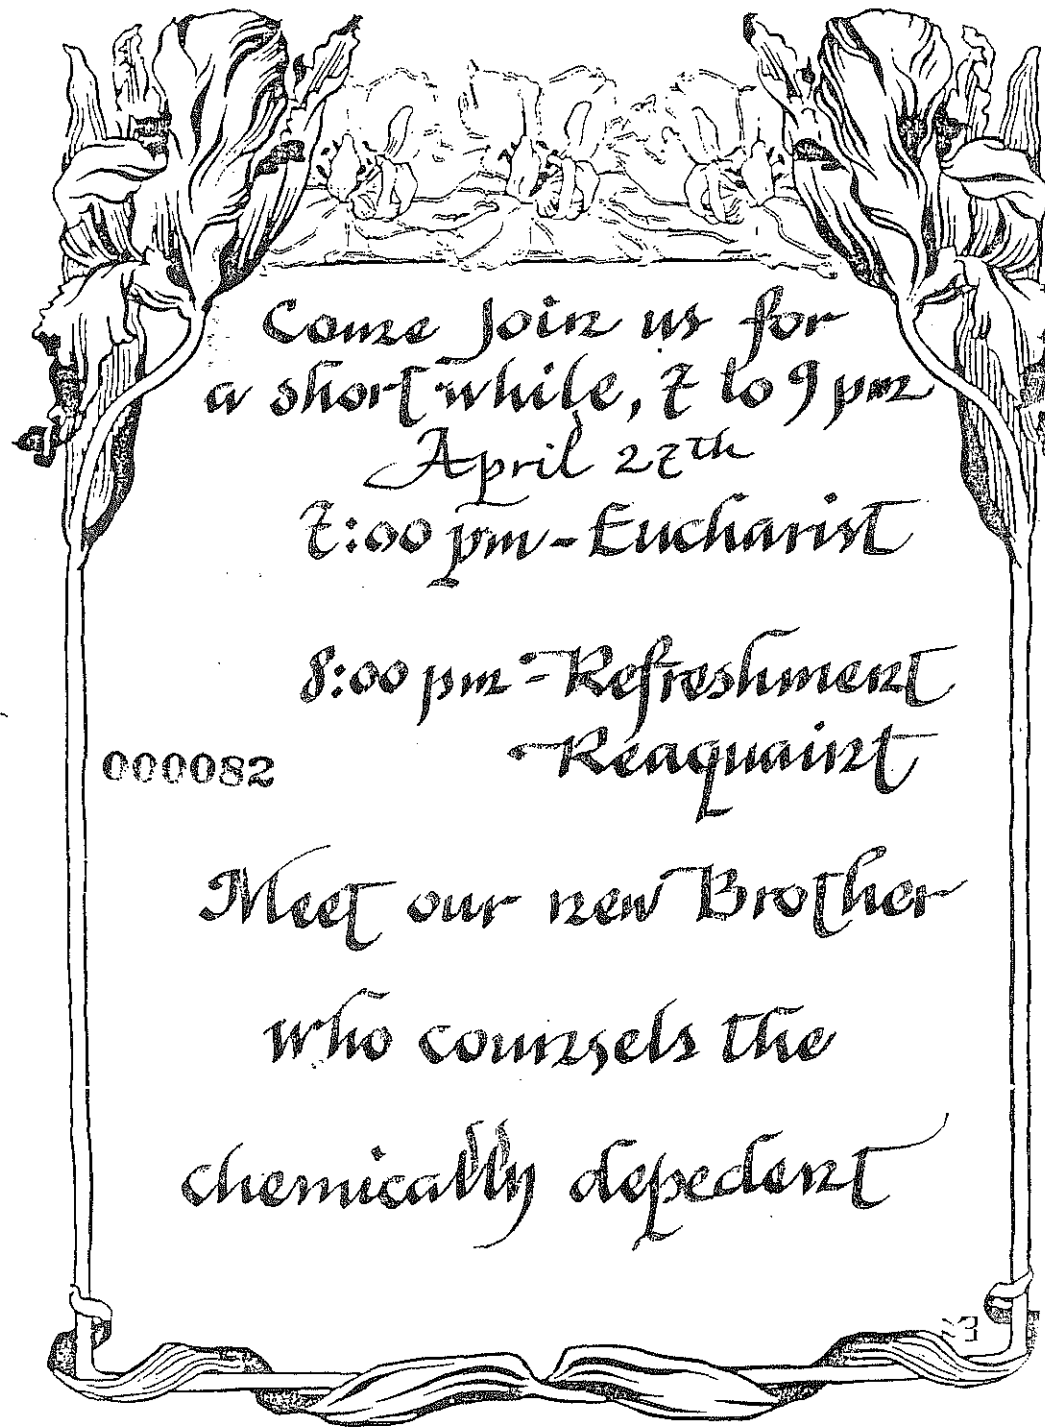 Come Join us for
a short while, 7 to 9 pm
April 27th
7:00 pm - Eucharist
8:00 pm - Refreshment
- Reaquaint
000082
Meet our new Brother
who counsels the
chemically depedent